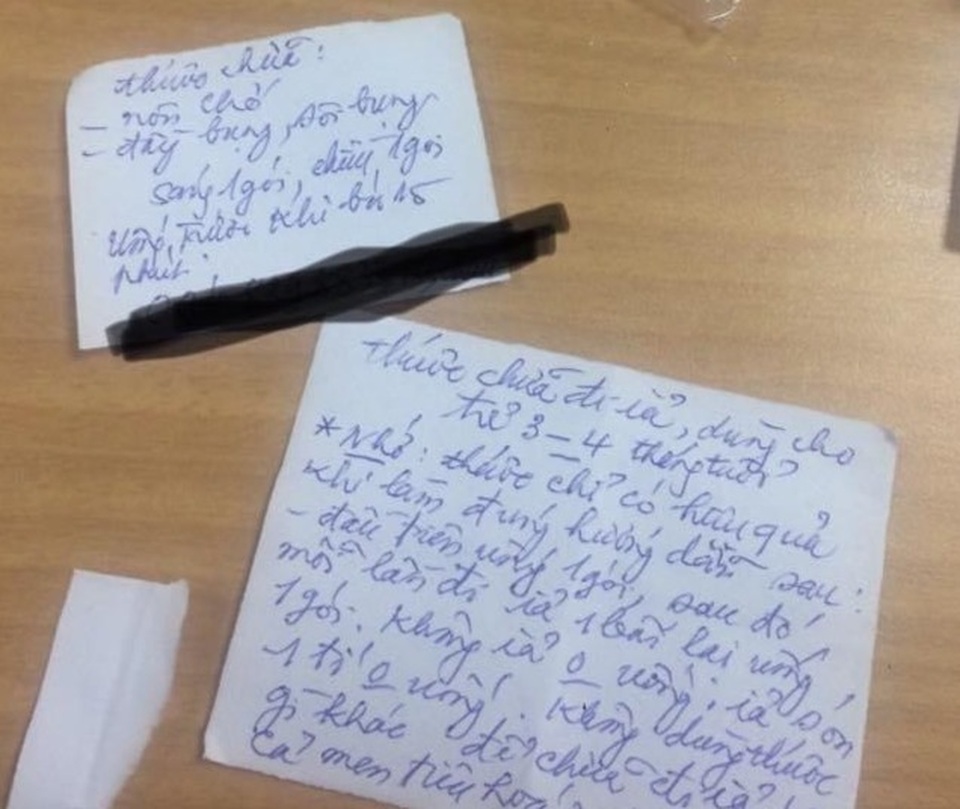 thuốc chữa:
- nôn chớ
- đầy bụng, sôi bụng
sáng 1 gói, chiều 1 gói
Uống trước khi bú 15
phút.
thuốc chữa đi ỉa, dùng cho
trẻ 3-4 tháng tuổi
* Nhớ: thuốc chỉ có hiệu quả
khi làm đúng hướng dẫn sau:
- đầu tiên uống 1 gói, sau đó
mỗi lần đi ỉa 1 lần lại uống
1 gói. Không ỉa 0 uống, ỉa són
1 tí 0 uống. Không dùng thuốc
gì khác để chữa đi ỉa
cả men tiêu hoá